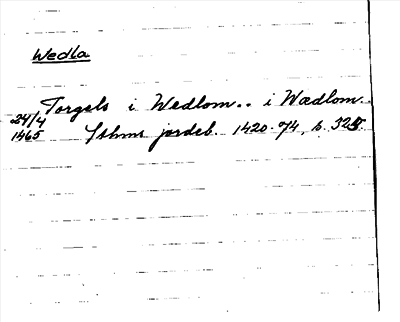 Wedla
Torgels i Wedlom.. i Wædlom..
24/4 1465 Sthms jordeb. 1420-74, s. 325.